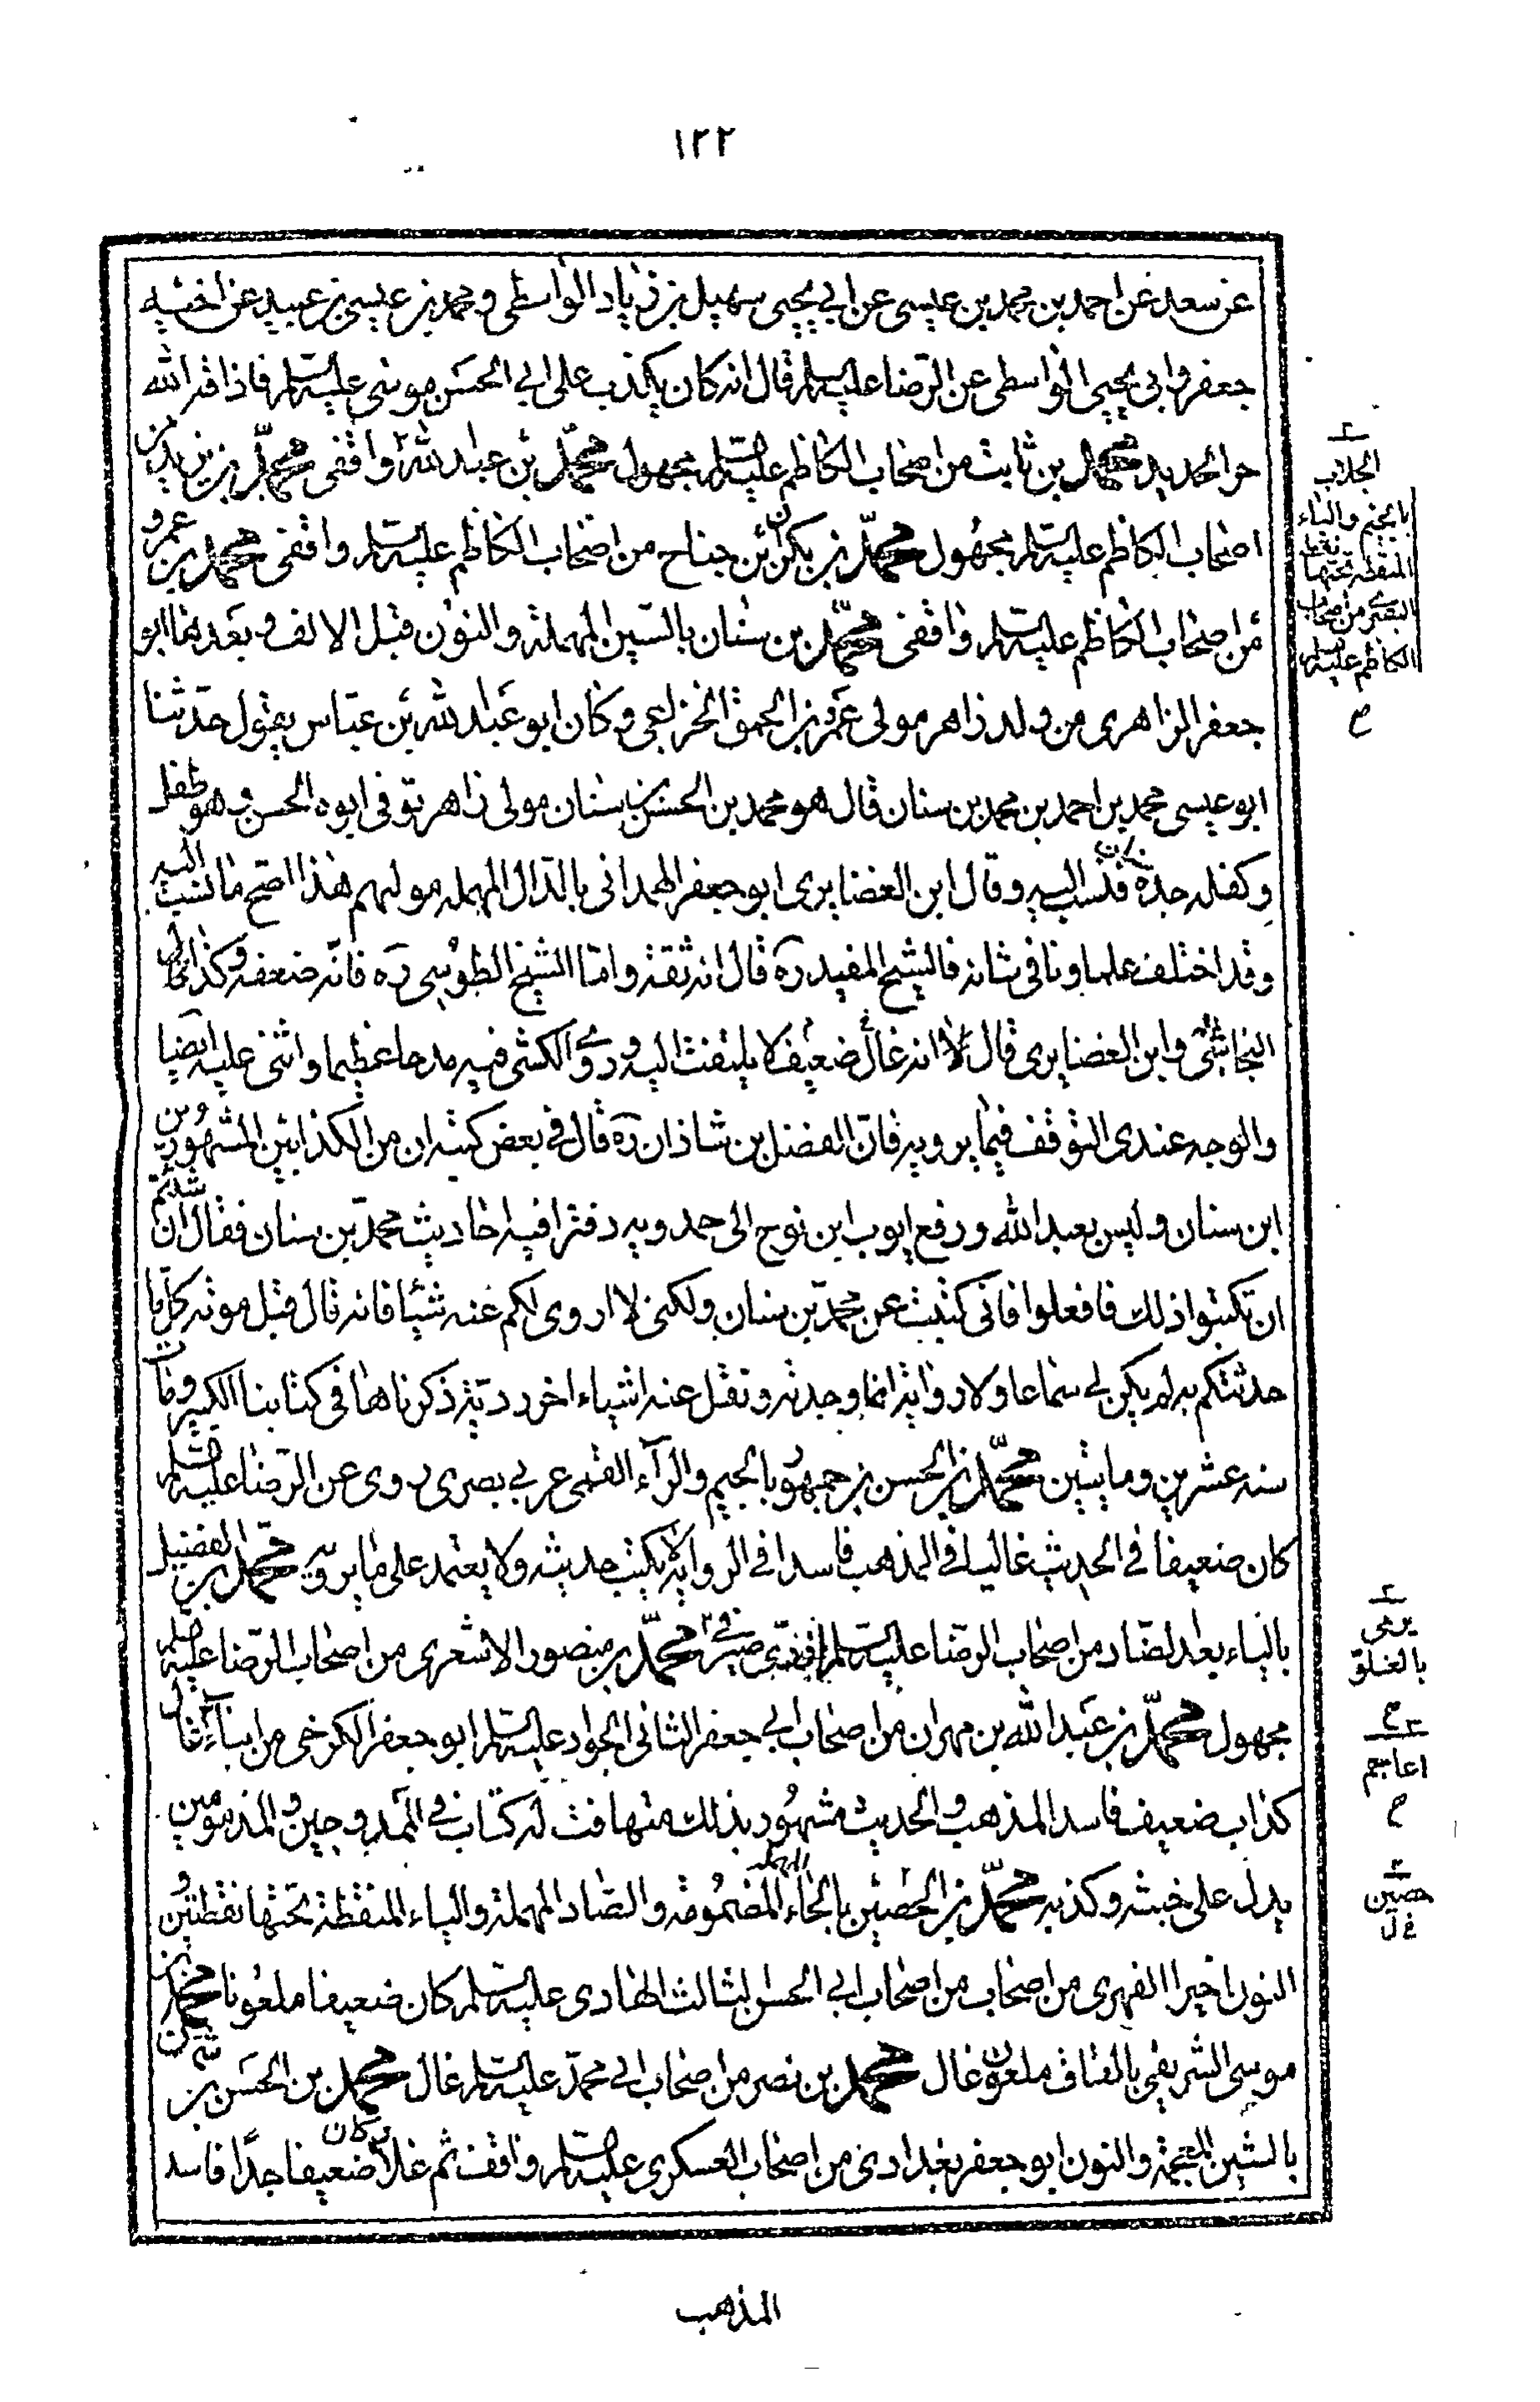 ١٢٢
عن سعد عن احمد بن محمد بن عيسى عن ابي يحيى سهيل بن زياد الواسطى و محمد بن عيسى بن عبيد عن اخيه
جعفر و ابى يحيى الواسطى عن الرضا عليه السلم قال انه كان يكذب على ابى الحسن موسى عليه السلم فاذاقه الله
حر الحديد محمد بن ثابت من اصحاب الكاظم عليه السلم مجهول محمد بن عبد الله٢ واقفى محمد بن زيد من
اصحاب الكاظم عليه السلم مجهول محمد بن بكران بن جناح من اصحاب الكاظم عليه السلم واقفى محمد بن عمرو
من اصحاب الكاظم عليه السلم واقفى محمد بن سنان بالسين المهملة والنون قبل الالف و بعدها ابو
جعفر الزاهرى من ولد زاهر مولى عمرو بن الحمق الخزاعى و كان ابو عبد الله بن عياش يقول حدثنا
ابو عيسى محمد بن احمد بن محمد بن سنان قال هو محمد بن الحسن بن سنان مولى زاهر توفى ابوه الحسن و هو طفل
و كفله جده سنان فنسب اليه و قال ابن الغضايرى ابو جعفر الهمدانى بالدال المهمله مولهم هذا اصح ما نسب اليه
و قد اختلف علماونا فى شانه فالشيخ المفيد ره قال انه ثقة و اما الشيخ الطوسى ره فانه ضعفه و كذا قال
النجاشى و ابن الغضايرى قال انه غال ضعيف لا يلتفت اليه و روى الكشى فيه مدحا عظيما و اثنى عليه ايضا
والوجه عندى التوقف فيما يرويه فان الفضل بن شاذان ره قال فى بعض كتبه ان من الكذابين المشهورين
ابن سنان و ليس بعبد الله و رفع ايوب ابن نوح الى حمدويه دفترا فيه احاديث محمد بن سنان فقال ان شئتم
ان تكتبوا ذلك فافعلوا فانى كتبت عن محمد بن سنان ولكنى لا اروى لكم عنه شيئا فانه قال قبل موته كل ما
حدثتكم به لم يكن لى سماعا و لا رواية انما وجدته و نقل عنه اشياء اخر ردية ذكرناها فى كتابنا الكبير و مات
سنه عشرين و مايتين محمد بن الحسن بن جمهور بالجيم والراء القمى عربى بصرى روى عن الرضا عليه السلم
كان ضعيفا فى الحديث غاليا فى المذهب فاسدا فى الرواية لا يكتب حديثه و لا يعتمد على ما يرويه محمد بن الفضيل
بالياء بعد الضاد من اصحاب الرضا عليه السلم ازدى صيرفى٢ محمد بن منصور الاشعرى من اصحاب الرضا عليه السلم
مجهول محمد بن عبد الله بن مهران من اصحاب ابى جعفر الثانى الجواد عليه السلم ابو جعفر الكرخى من ابناء٣ غال
كذاب ضعيف فاسد المذهب و الحديث مشهور بذلك متهافت له كتاب فى الممدوحين و المذمومين
يدل على خبثه و كذبه محمد بن الحصين بالحاء المهملة المضمومة و الصاد المهملة و الياء المنقطة تحتها نقطتين و
النون اخيرا الفهرى من اصحاب من اصحاب ابى الحسن الثالث الهادى عليه السلم كان ضعيفا ملعونا محمد بن
موسى الشريقى بالقاف ملعون غال محمد بن نصر من اصحاب ابى محمد عليه السلم غال محمد بن الحسن بن شمون
بالشين المعجمة والنون ابو جعفر بغدادى من اصحاب العسكرى عليه السلم واقف ثم غلا و كان ضعيفا جدا فاسد
المذهب
٢
الجلاب
بالجيم والباء
المنقطة تحتها نقطة
البصرى من اصحاب
الكاظم عليه السلم
ح
٢
يرمى
بالغلو
ح
٣
اعاجم
ح
٢
حصين
غ ل